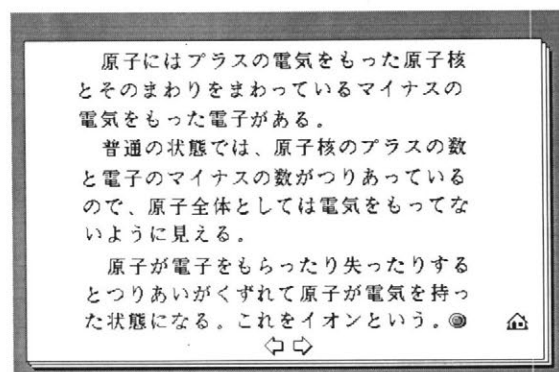 原子にはプラスの電気をもった原子核
とそのまわりをまわっているマイナスの
電気をもった電子がある。
普通の状態では、原子核のプラスの数
と電子のマイナスの数がつりあっている
ので、原子全体としては電気をもってな
いように見える。
原子が電子をもらったり失ったりする
とつりあいがくずれて原子が電気を持っ
た状態になる。これをイオンという。